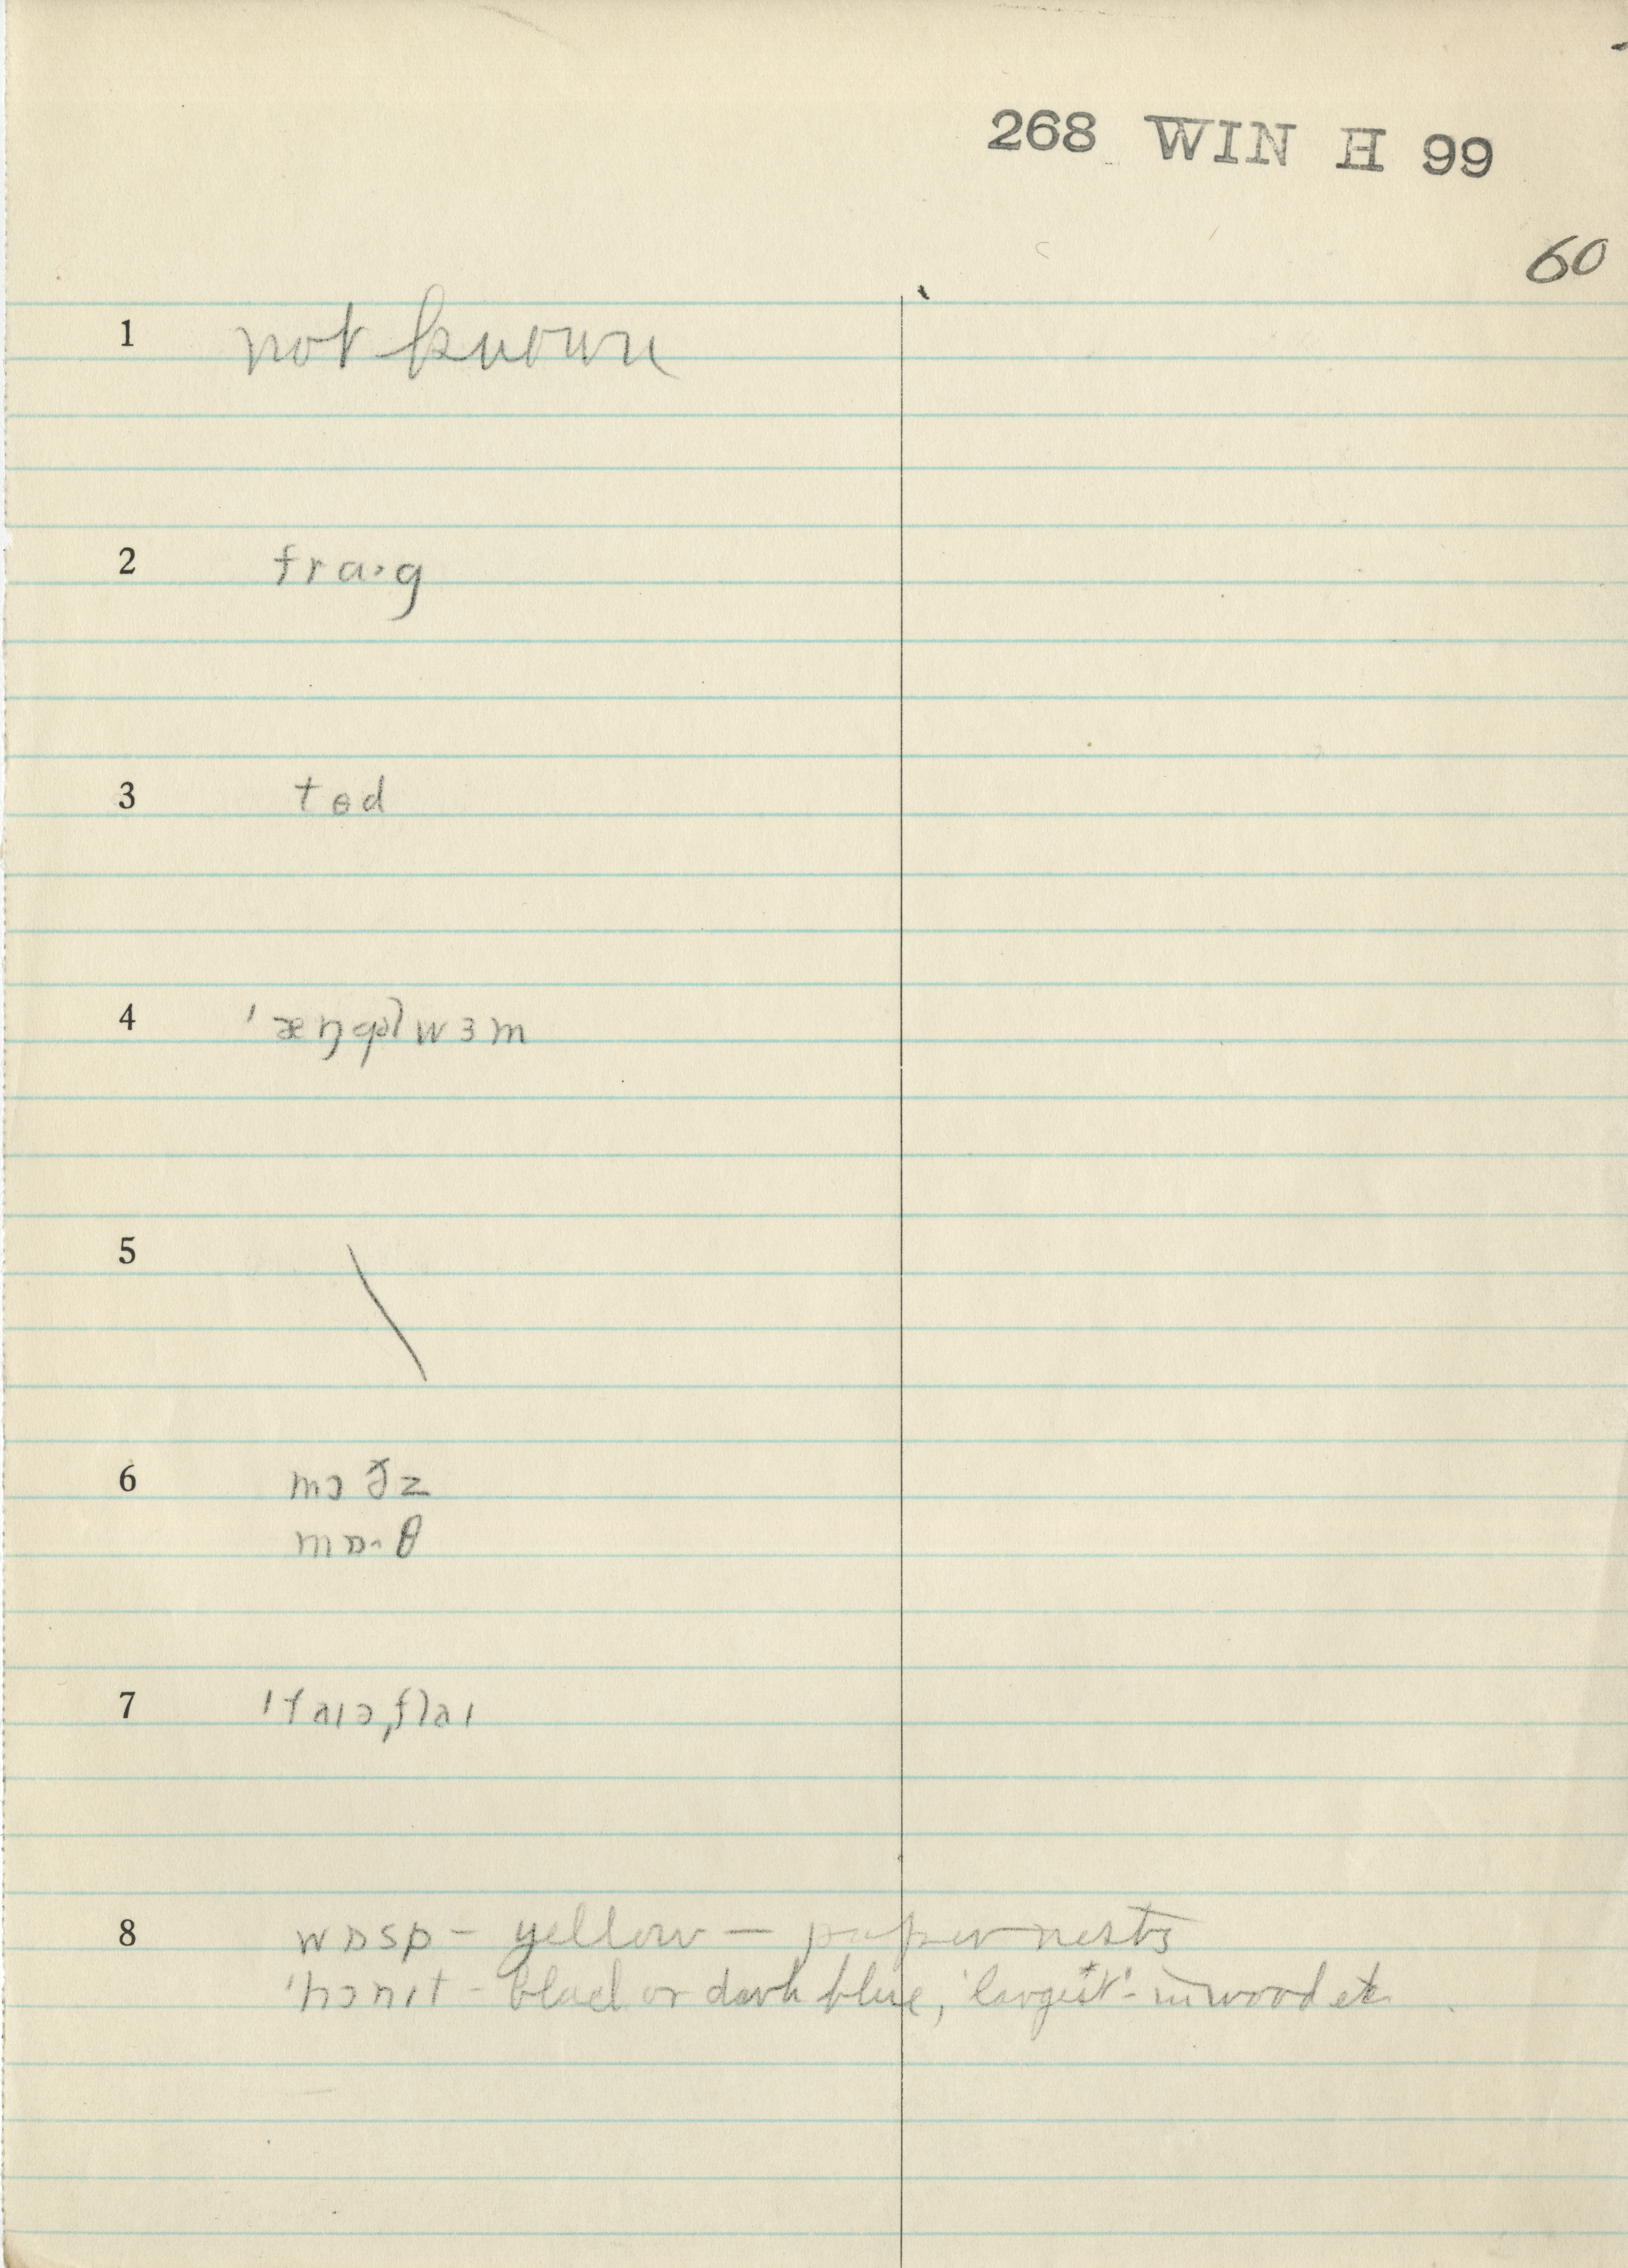 268 WIN H 99
60
1 not known
2 fra·g
3 tɵd
4 ˈæŋgəlwɜm
5 \
6 mɔðz
mɒ·θ
7 ˈfaɪəˌflaɪ
8 wɒsp – yellow – paper nests
ˈhɔnɪt – black or dark blue, 'largest' – in wood etc